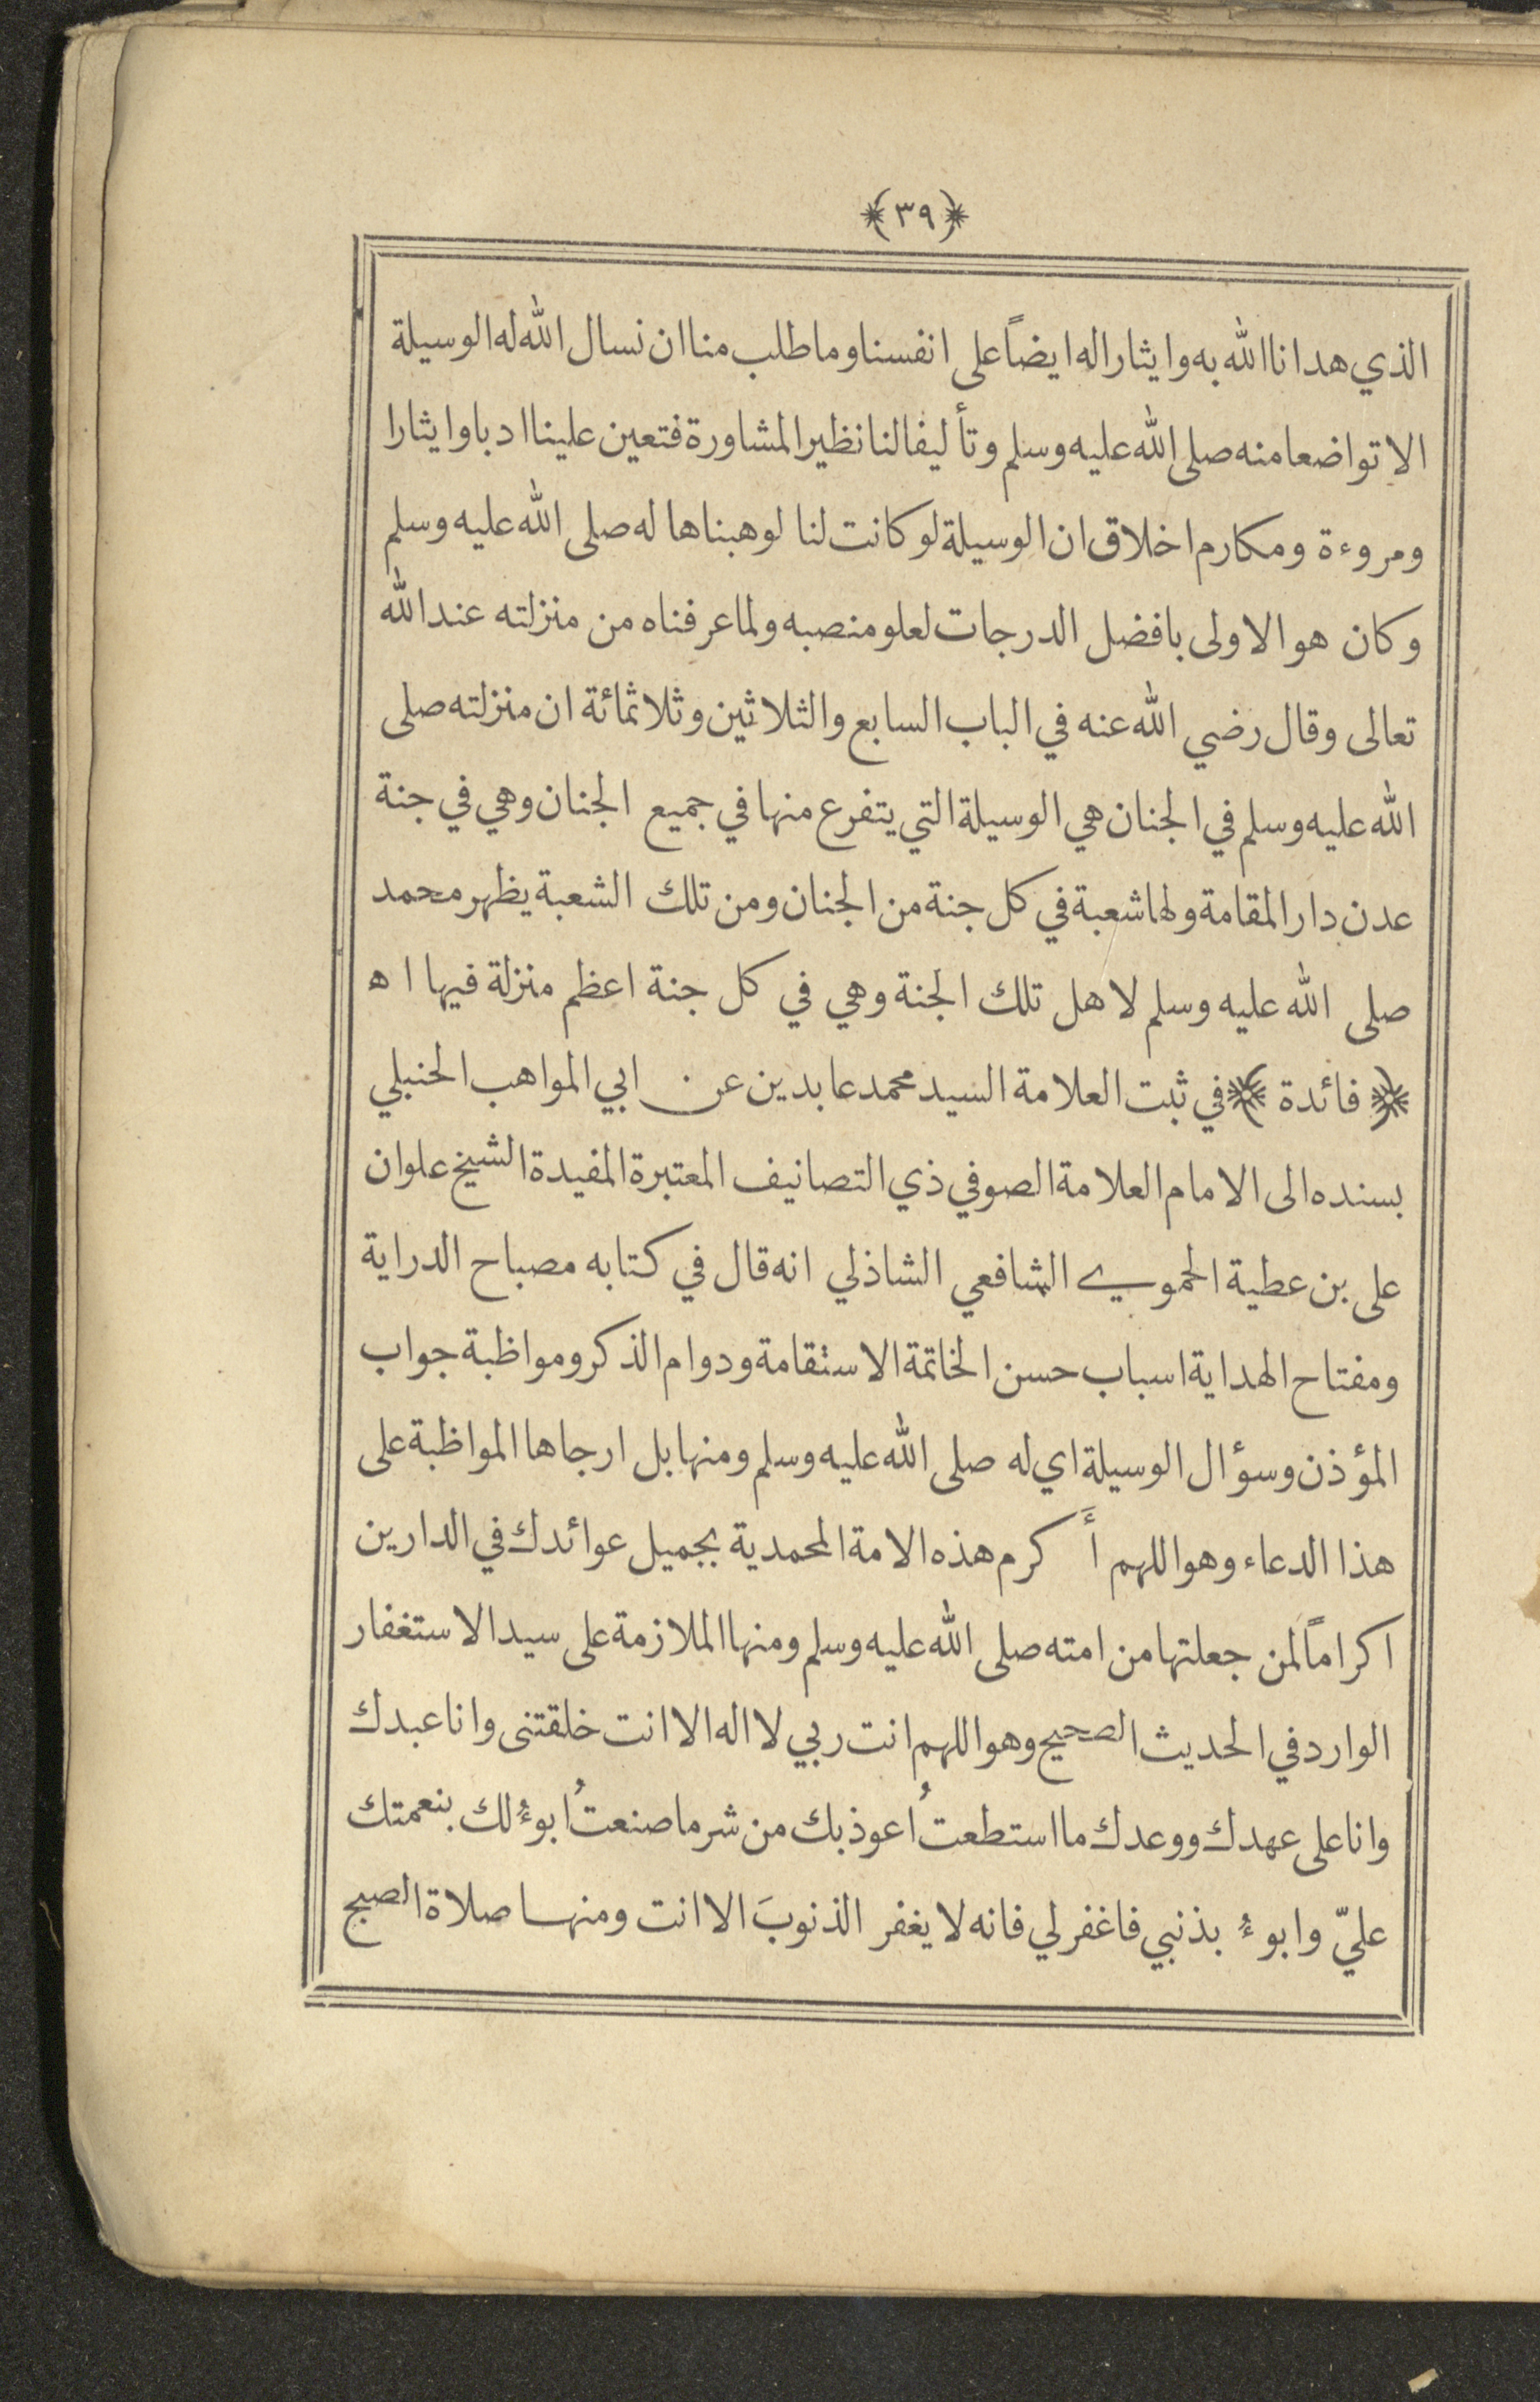 ﴿٣٩﴾
الذي هدانا الله به وايثارا له ايضاً على انفسنا وما طلب منا ان نسال الله له الوسيلة
الا تواضعا منه صلى الله عليه وسلم وتأليفا لنا نظير المشاورة فتعين علينا ادبا وايثارا
ومروءة ومكارم اخلاق ان الوسيلة لو كانت لنا لوهبناها له صلى الله عليه وسلم
وكان هو الاولى بافضل الدرجات لعلو منصبه ولما عرفناه من منزلته عند الله
تعالى وقال رضي الله عنه في الباب السابع والثلاثين وثلاثمائة ان منزلته صلى
الله عليه وسلم في الجنان هي الوسيلة التي يتفرع منها في جميع الجنان وهي في جنة
عدن دار المقامة ولها شعبة في كل جنة من الجنان ومن تلك الشعبة يظهر محمد
صلى الله عليه وسلم لاهل تلك الجنة وهي في كل جنة اعظم منزلة فيها اه
﴿ فائدة ﴾ في ثبت العلامة السيد محمد عابدين عن ابي المواهب الحنبلي
بسنده الى الامام العلامة الصوفي ذي التصانيف المعتبرة المفيدة الشيخ علوان
على بن عطية الحموي الشافعي الشاذلي انه قال في كتابه مصباح الدراية
ومفتاح الهداية اسباب حسن الخاتمة الاستقامة ودوام الذكر ومواظبة جواب
المؤذن وسؤال الوسيلة اي له صلى الله عليه وسلم ومنها بل ارجاها المواظبة على
هذا الدعاء وهو اللهم أَكرم هذه الامة المحمدية بجميل عوائدك في الدارين
اكراماً لمن جعلتها من امته صلى الله عليه وسلم ومنها الملازمة على سيد الاستغفار
الوارد في الحديث الصحيح وهو اللهم انت ربي لا اله الا انت خلقتنى وانا عبدك
وانا على عهدك ووعدك ما استطعتُ اعوذ بك من شر ما صنعتُ ابوءُ لك بنعمتك
عليّ وابوءُ بذنبي فاغفر لي فانه لا يغفر الذنوبَ الا انت ومنها صلاة الصبح